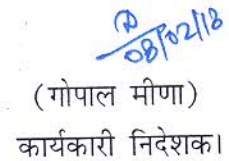 08/02/18
(गोपाल मीणा)
कार्यकारी निदेशक।